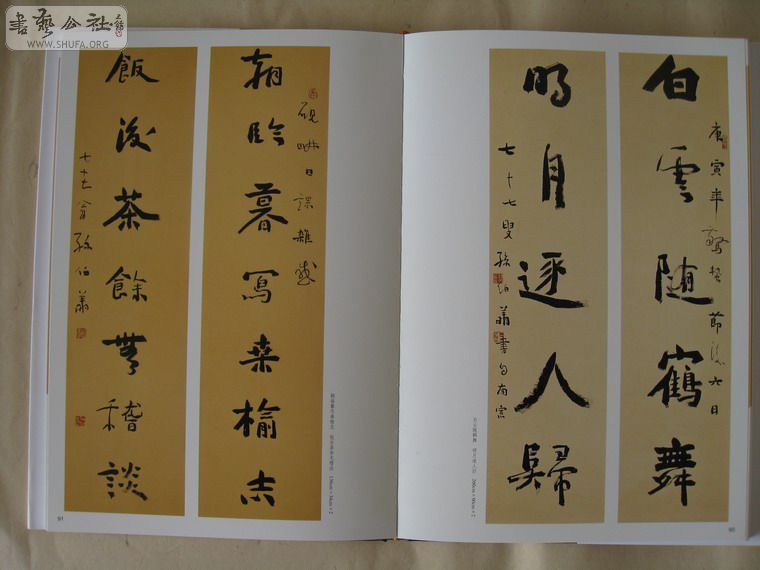 書藝公社
WWW.SHUFA.ORG
白雲随鶴舞
庚寅年驚蟄節後六日
明月逐人歸
七十七叟孫伯翔書
朝吟暮寫桑榆志
硯畊日課雜感
飯後茶餘無稽談
七十七翁孫伯翔
91
90